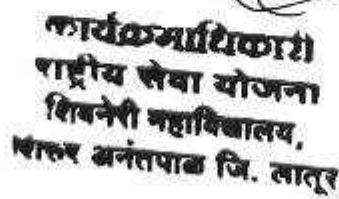 कार्यक्रमाधिकारी
राष्ट्रीय सेवा योजना
शिवनेरी महाविद्यालय,
शिरूर अनंतपाळ जि. लातूर